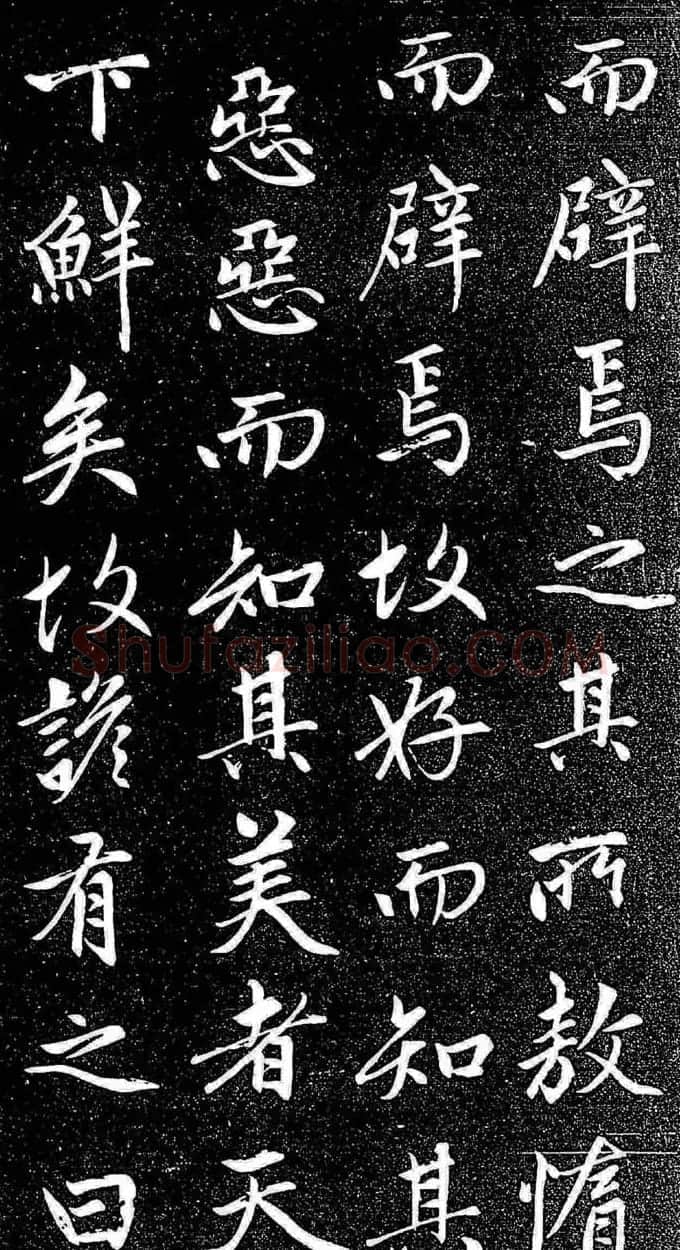 而辟焉之其所敖惰
而辟焉故好而知其
惡惡而知其美者天
下鮮矣故諺有之曰
Shufaziliao.COM